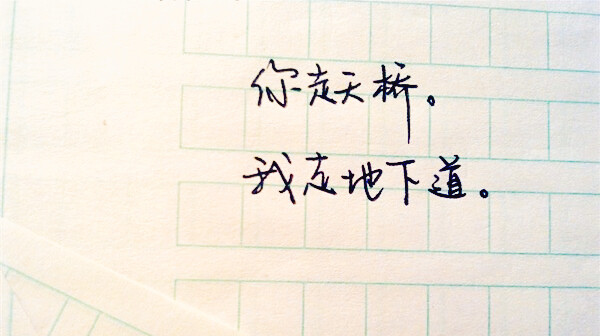 你走天桥。
我走地下道。